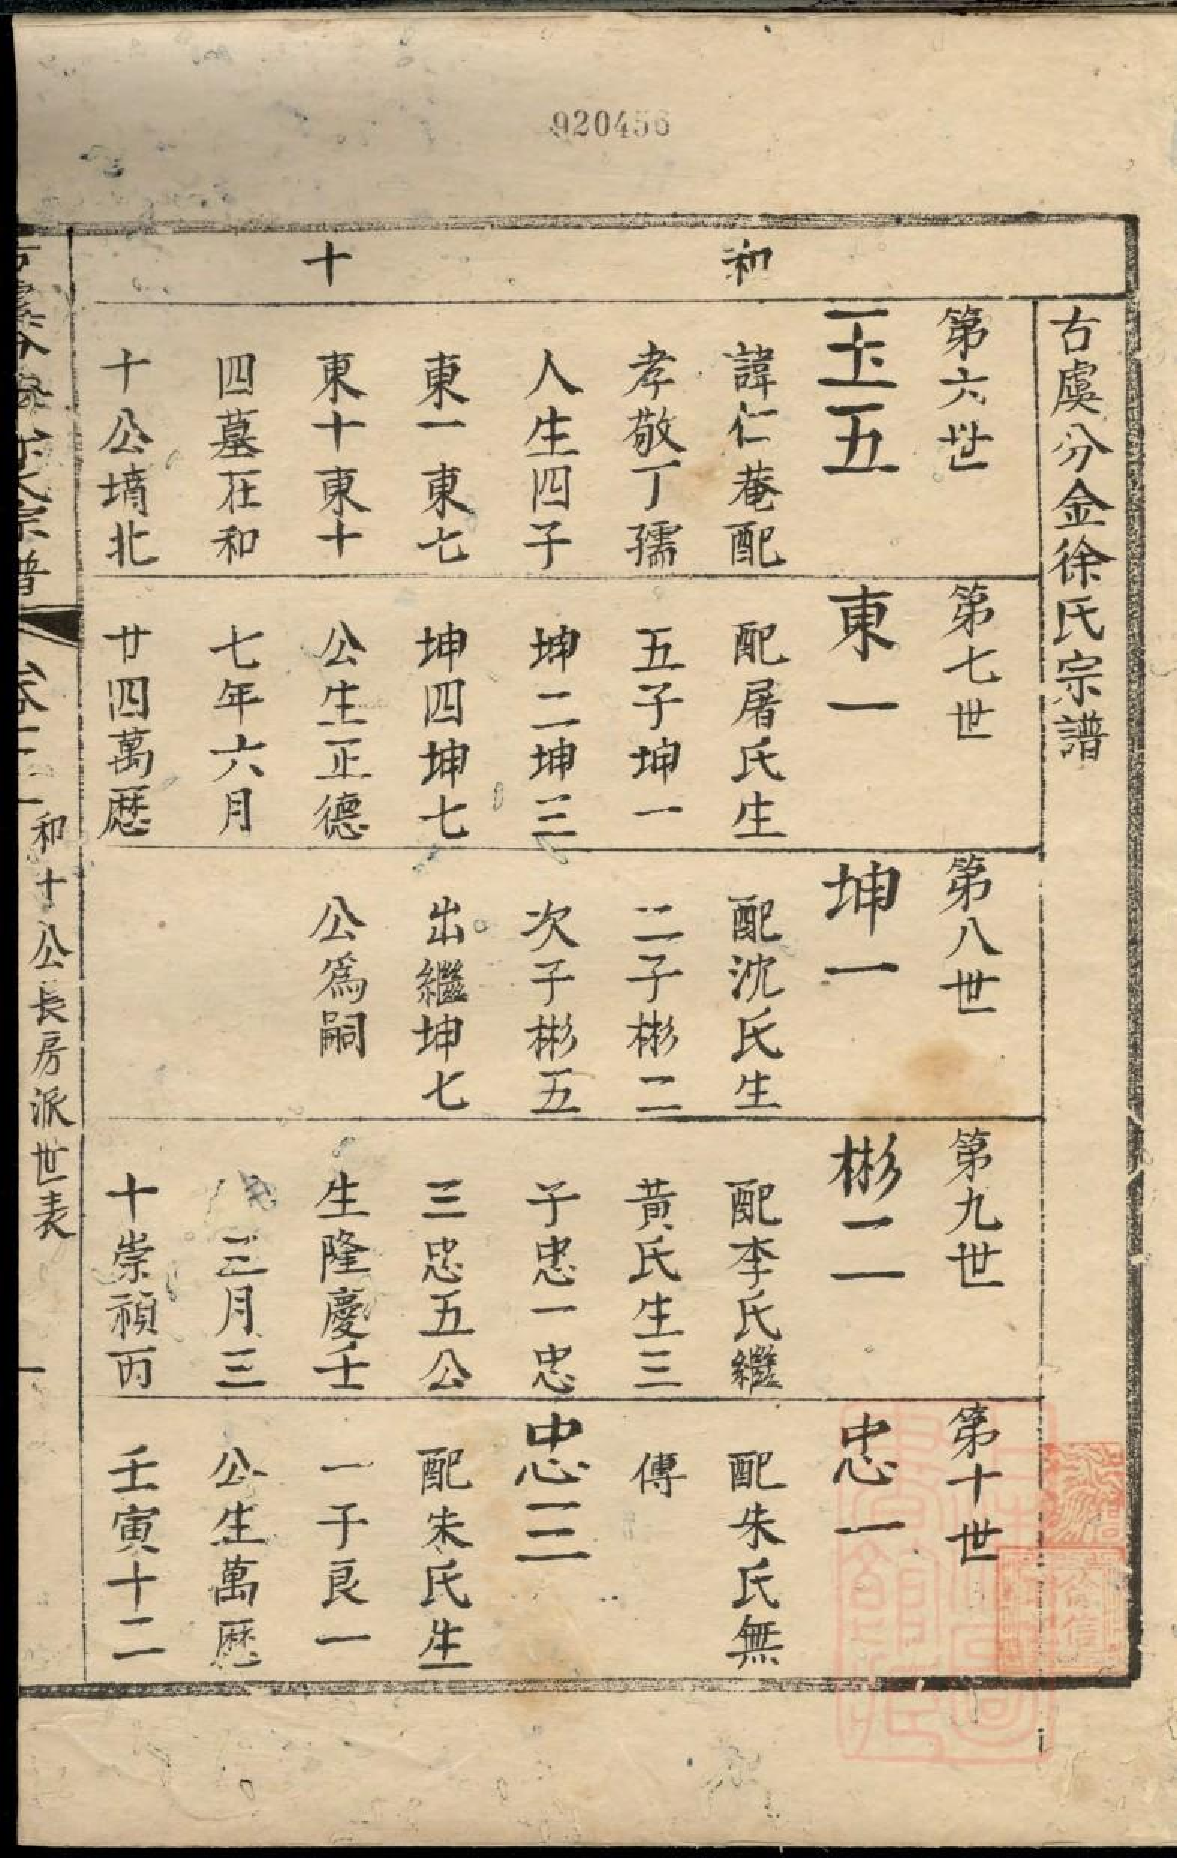 920456
和
十
古虞分金徐氏宗譜
第六世
玉五
諱仁菴配
孝敬丁孺
人生四子
東一東七
東十東十
四墓在和
十公墳北
第七世
東一
配屠氏生
五子坤一
坤二坤三
坤四坤七
公生正德
七年六月
廿四萬厯
第八世
坤一
配沈氏生
二子彬二
次子彬五
出繼坤七
公爲嗣
第九世
彬二
配李氏繼
黄氏生三
子忠一忠
三忠五公
生隆慶壬
三月三
十崇禎丙
第十世
忠一
配朱氏無
傳
忠三
配朱氏生
一子良一
公生萬厯
壬寅十二
宗譜
和十公長房派世表
一